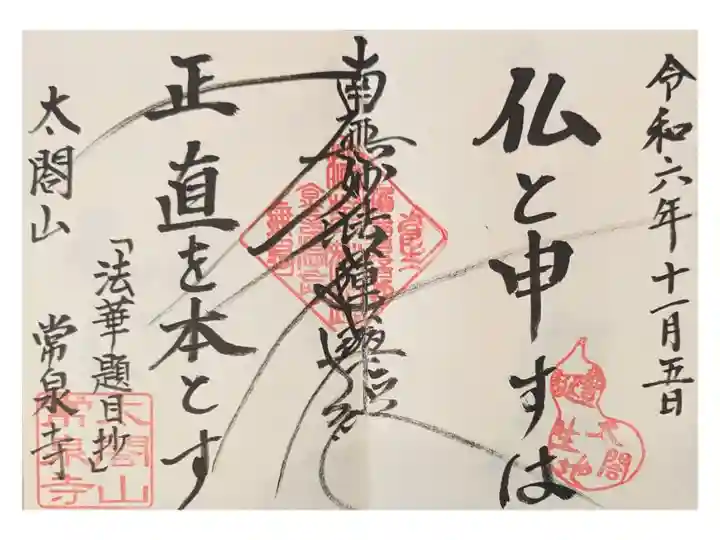 令和六年十一月五日
仏と申すは
南無妙法蓮華経
正直を本とす
「法華題目抄」
太閤山 常泉寺
太閤山
常泉寺
豊太閤
誕生地